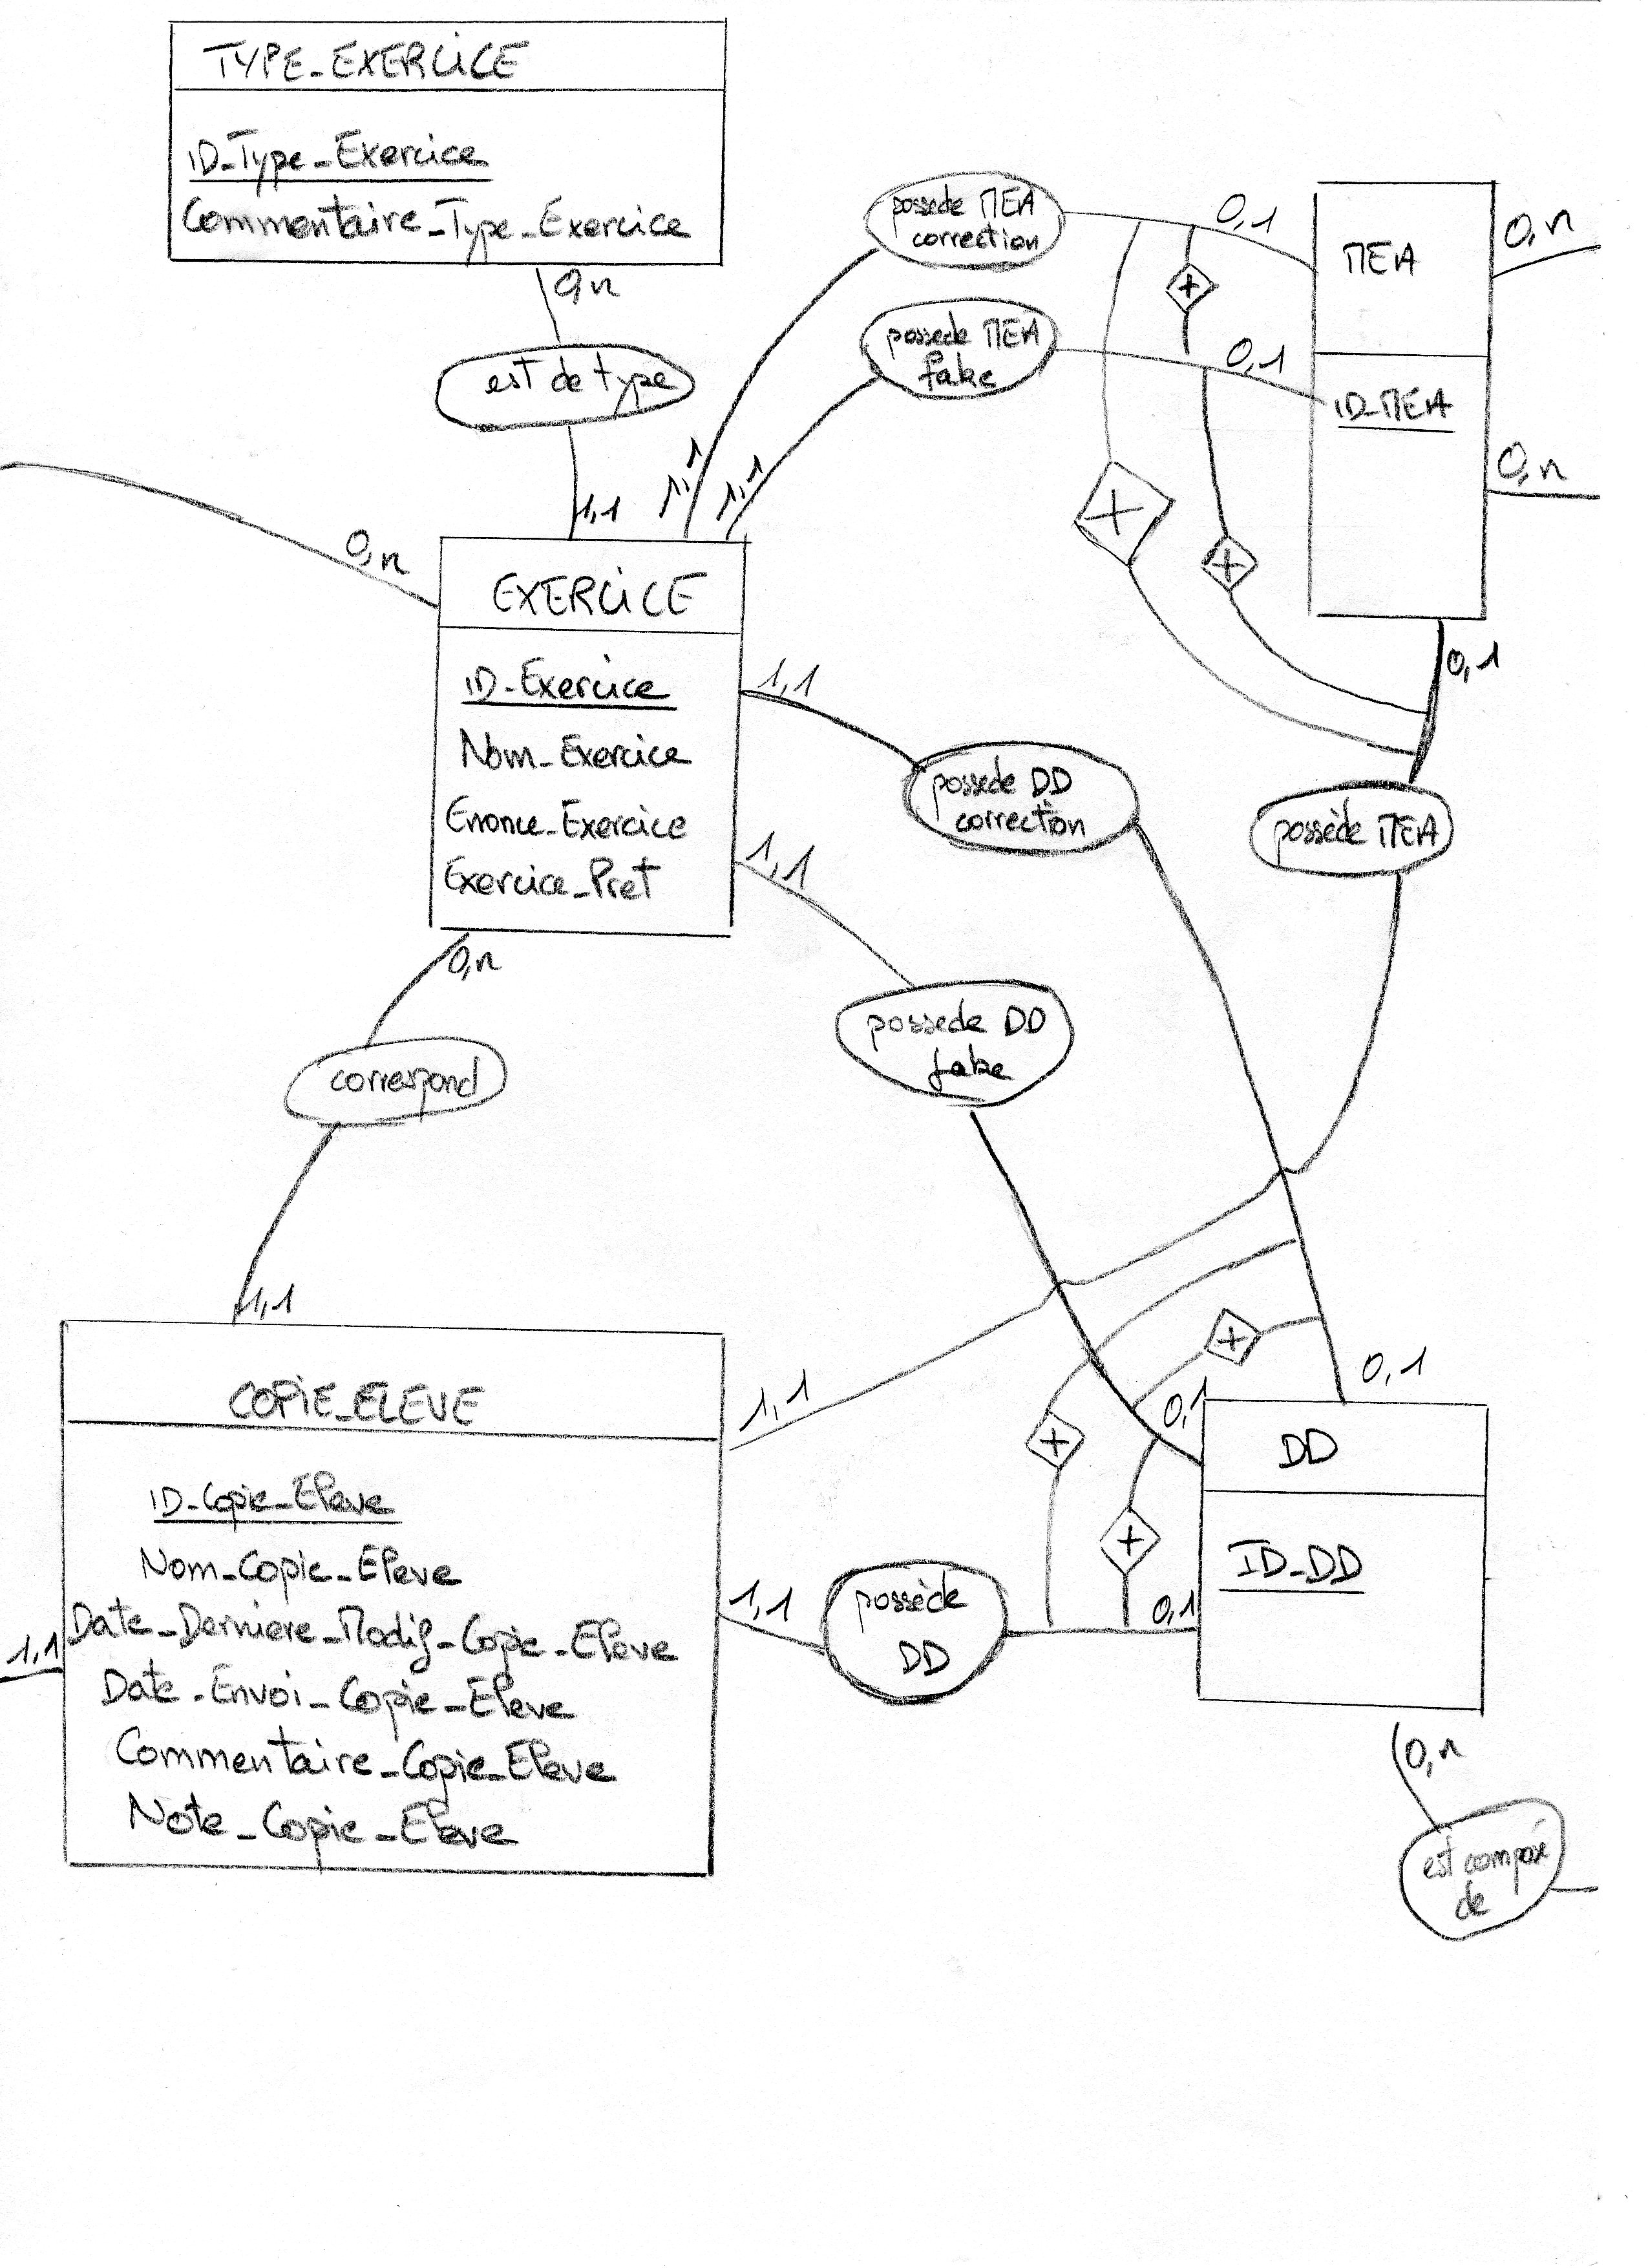 TYPE_EXERCICE
ID_Type_Exercice
Commentaire_Type_Exercice
0,n
est de type
1,1
possede MEA
correction
1,1
0,1
possede MEA
fake
1,1
0,1
MEA
ID_MEA
0,n
0,n
0,1
X
X
X
0,n
EXERCICE
ID_Exercice
Nom_Exercice
Enonce_Exercice
Exercice_Pret
1,1
possede DD
correction
possède MEA
1,1
possede DD
fake
0,n
correspond
1,1
COPIE_ELEVE
ID_Copie_Eleve
Nom_Copie_Eleve
Date_Derniere_Modif_Copie_Eleve
Date_Envoi_Copie_Eleve
Commentaire_Copie_Eleve
Note_Copie_Eleve
1,1
1,1
1,1
possède
DD
0,1
X
X
X
0,1
0,1
DD
ID_DD
0,n
est composé
de